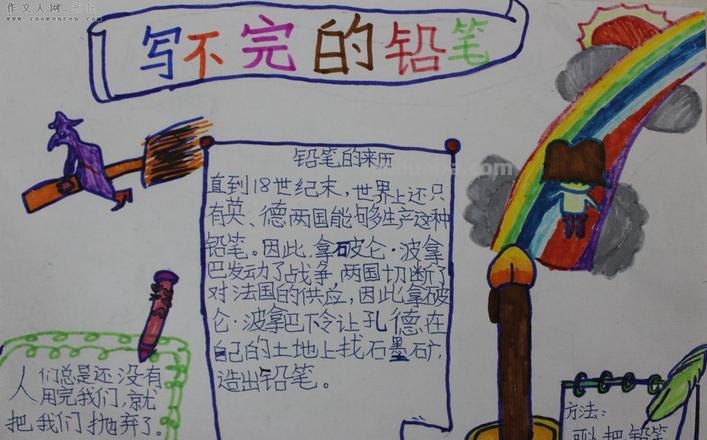 作文人网
www.zuowenren.com
写不完的铅笔
铅笔的来历
直到18世纪末，世界上还只
有英、德两国能够生产这种
铅笔。因此，拿破仑·波拿
巴发动了战争，两国切断了
对法国的供应，因此拿破
仑·波拿巴下令让孔德，在
自己的土地上找石墨矿，
造出铅笔。
人们总是还没有
用完我们，就
把我们抛弃了。
方法：
可以把铅笔